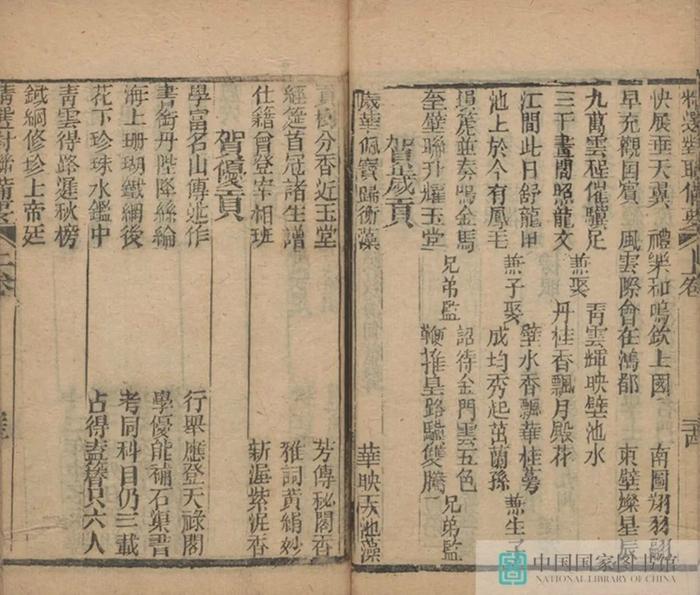 快展垂天翼 禮樂和鳴欽上國 南圖翔羽翮
早充觀國賓 風雲際會在鴻都 東壁燦星辰
九萬雲程催驥足 靑雲輝映壁池水
三千畫閣照龍文 兼娶 丹桂香飄月殿花
江間此日舒龍甲 壁水香飄華桂蕚
池上於今有鳳毛 兼子娶 成均秀起茁蘭孫 兼生子
塤箎並奏鳴金馬 詔待金門雲五色
奎壁聯升耀玉堂 兄弟監 鞭推皇路驥雙騰 兄弟監
賀歲貢
歲華佩寶歸衡藻 華映天池藻
貢樹分香近玉堂 芳傳秘閣香
經筵首冠諸生譜 雅詞黃絹妙
仕籍曾登宰相班 新 紫泥香
賀優貢
學富名山傳述作 行舉應登天祿閣
書銜丹陛降絲綸 學優能補石渠書
海上珊瑚鐵網後 考同科目仍三載
花下珍珠水鑑中 占得盍簪只六人
靑雲得路遲秋榜
鐵網修珍上帝廷
精選對聯備要 上卷
中国国家图书馆
NATIONAL LIBRARY OF CHINA